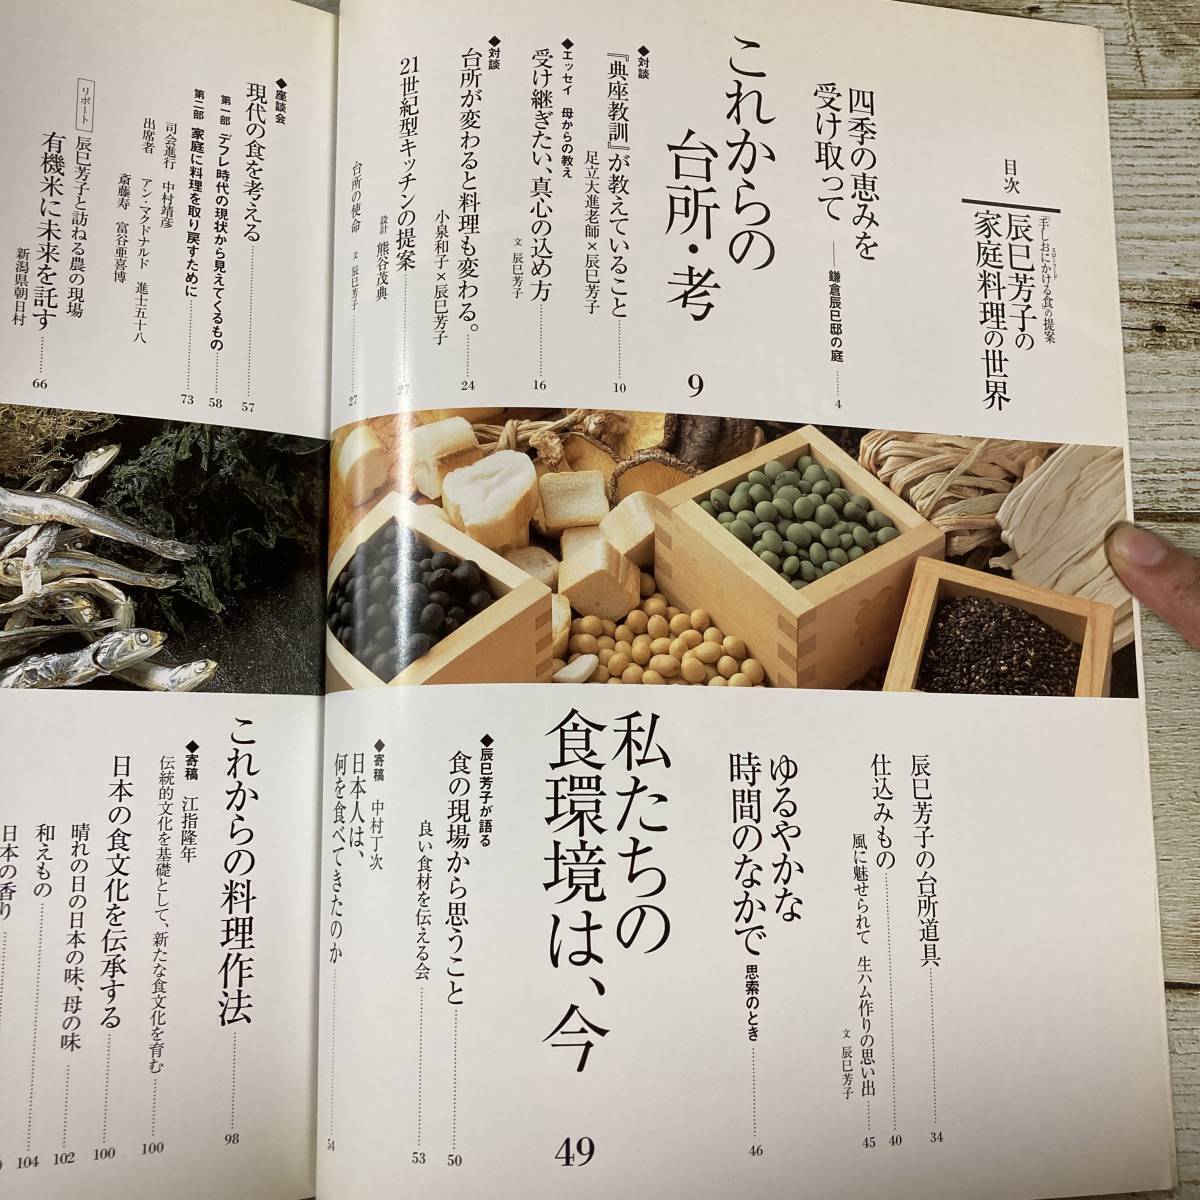 目次
「手しおにかける食」の提案
スローフード
辰巳芳子の
家庭料理の世界
四季の恵みを
受け取って ──鎌倉辰巳邸の庭……4
これからの
台所・考 9
◆対談
『典座教訓』が教えていること……10
足立大進老師×辰巳芳子
◆エッセイ 母からの教え
受け継ぎたい、真心の込め方……16
文 辰巳芳子
◆対談
台所が変わると料理も変わる。……24
小泉和子×辰巳芳子
21世紀型キッチンの提案……27
設計 熊谷茂典
台所の使命 文 辰巳芳子……27
辰巳芳子の台所道具……34
仕込みもの……40
風に魅せられて 生ハム作りの思い出……45
文 辰巳芳子
ゆるやかな
時間のなかで 思索のとき……46
私たちの
食環境は、今 49
◆辰巳芳子が語る
食の現場から思うこと……50
良い食材を伝える会……53
◆寄稿 中村丁次
日本人は、
何を食べてきたのか……54
◆座談会
現代の食を考える……57
第一部 デフレ時代の現状から見えてくるもの……58
第二部 家庭に料理を取り戻すために……73
司会進行 中村靖彦
出席者 アン・マクドナルド 進士五十八
斎藤寿 富谷亜喜博
リポート 辰巳芳子と訪ねる農の現場
有機米に未来を託す……66
新潟県朝日村
これからの料理作法……98
◆寄稿 江指隆年
伝統的文化を基礎として、新たな食文化を育む……100
日本の食文化を伝承する……100
晴れの日の日本の味、母の味……102
和えもの……104
日本の香り……